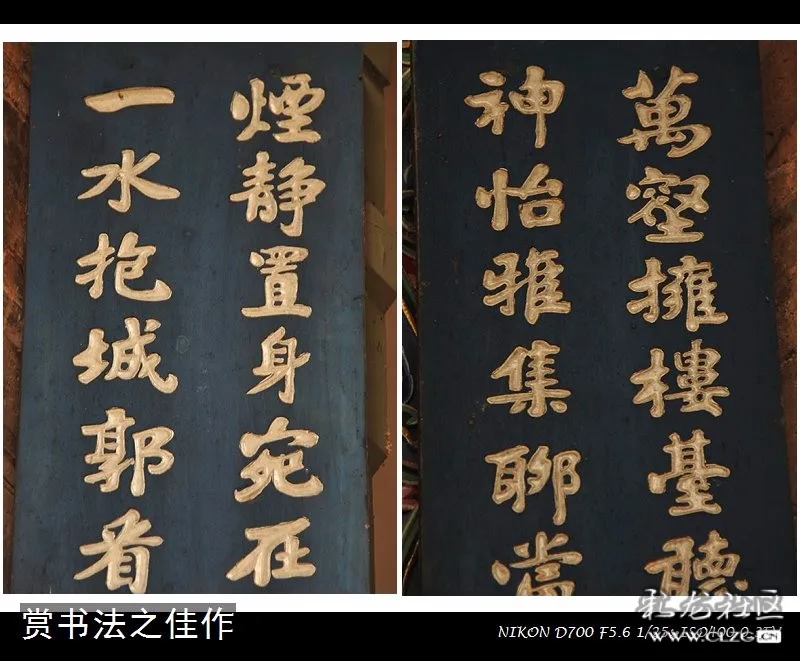 萬壑擁樓臺聽
神怡雅集聊當
一水抱城郭看
煙靜置身宛在
赏书法之佳作
NIKON D700 F5.6 1/25s ISO400
社区
www.CLZG.CN